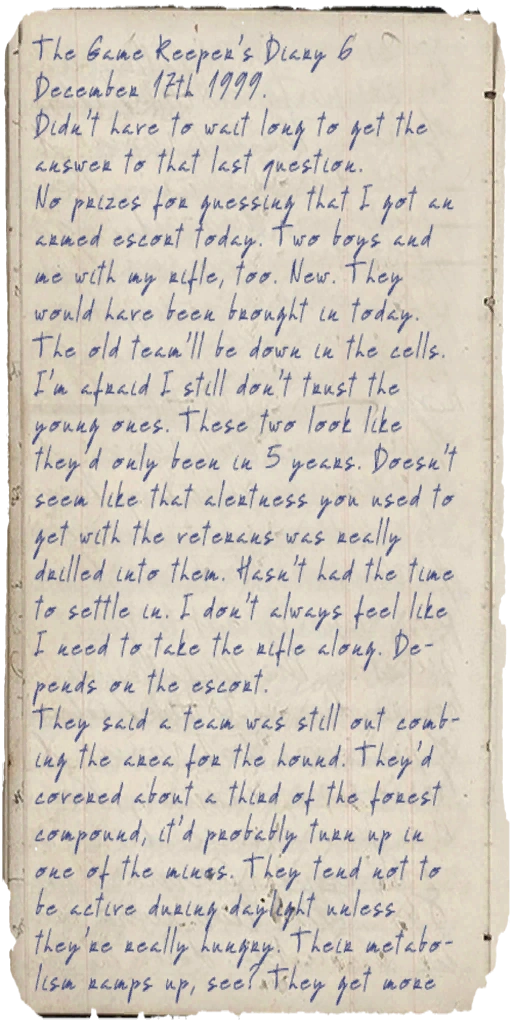 The Game Keeper's Diary 6
December 17th 1999.
Didn't have to wait long to get the
answer to that last question.
No prizes for guessing that I got an
armed escort today. Two boys and
me with my rifle, too. New. They
would have been brought in today.
The old team'll be down in the cells.
I'm afraid I still don't trust the
young ones. These two look like
they'd only been in 5 years. Doesn't
seem like that alertness you used to
get with the veterans was really
drilled into them. Hasn't had the time
to settle in. I don't always feel like
I need to take the rifle along. De-
pends on the escort.
They said a team was still out comb-
ing the area for the hound. They'd
covered about a third of the forest
compound, it'd probably turn up in
one of the mines. They tend not to
be active during daylight unless
they're really hungry. Their metabo-
lism ramps up, see? They get more